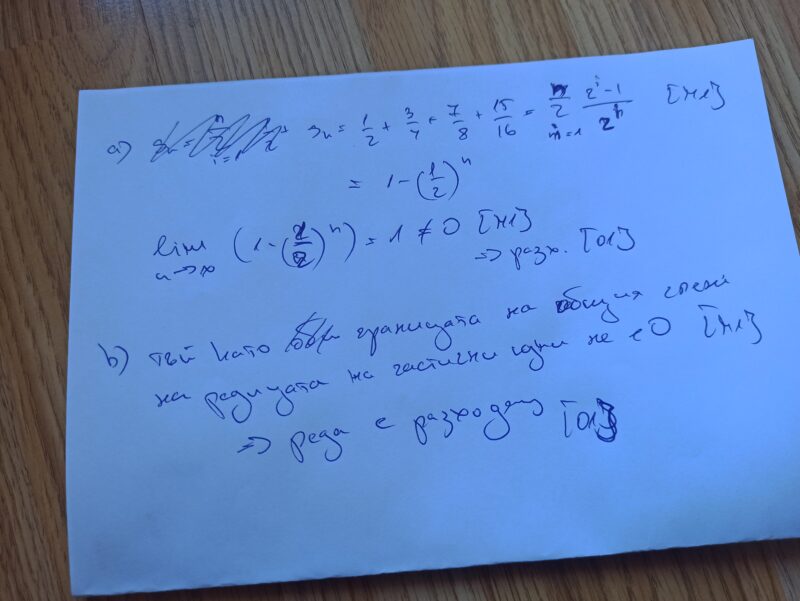 a) Sn = 1/2 + 3/4 + 7/8 + 15/16 = Σ n=1 (2^i - 1)/2^n [M1]
= 1 - (1/2)^n
lim n→∞ (1 - (1/2)^n) = 1 ≠ 0 [M1]
=> разх. [01]
b) тъй като границата на общия член
на редицата на частични суми не е 0 [M1]
=> реда е разходящ [01]